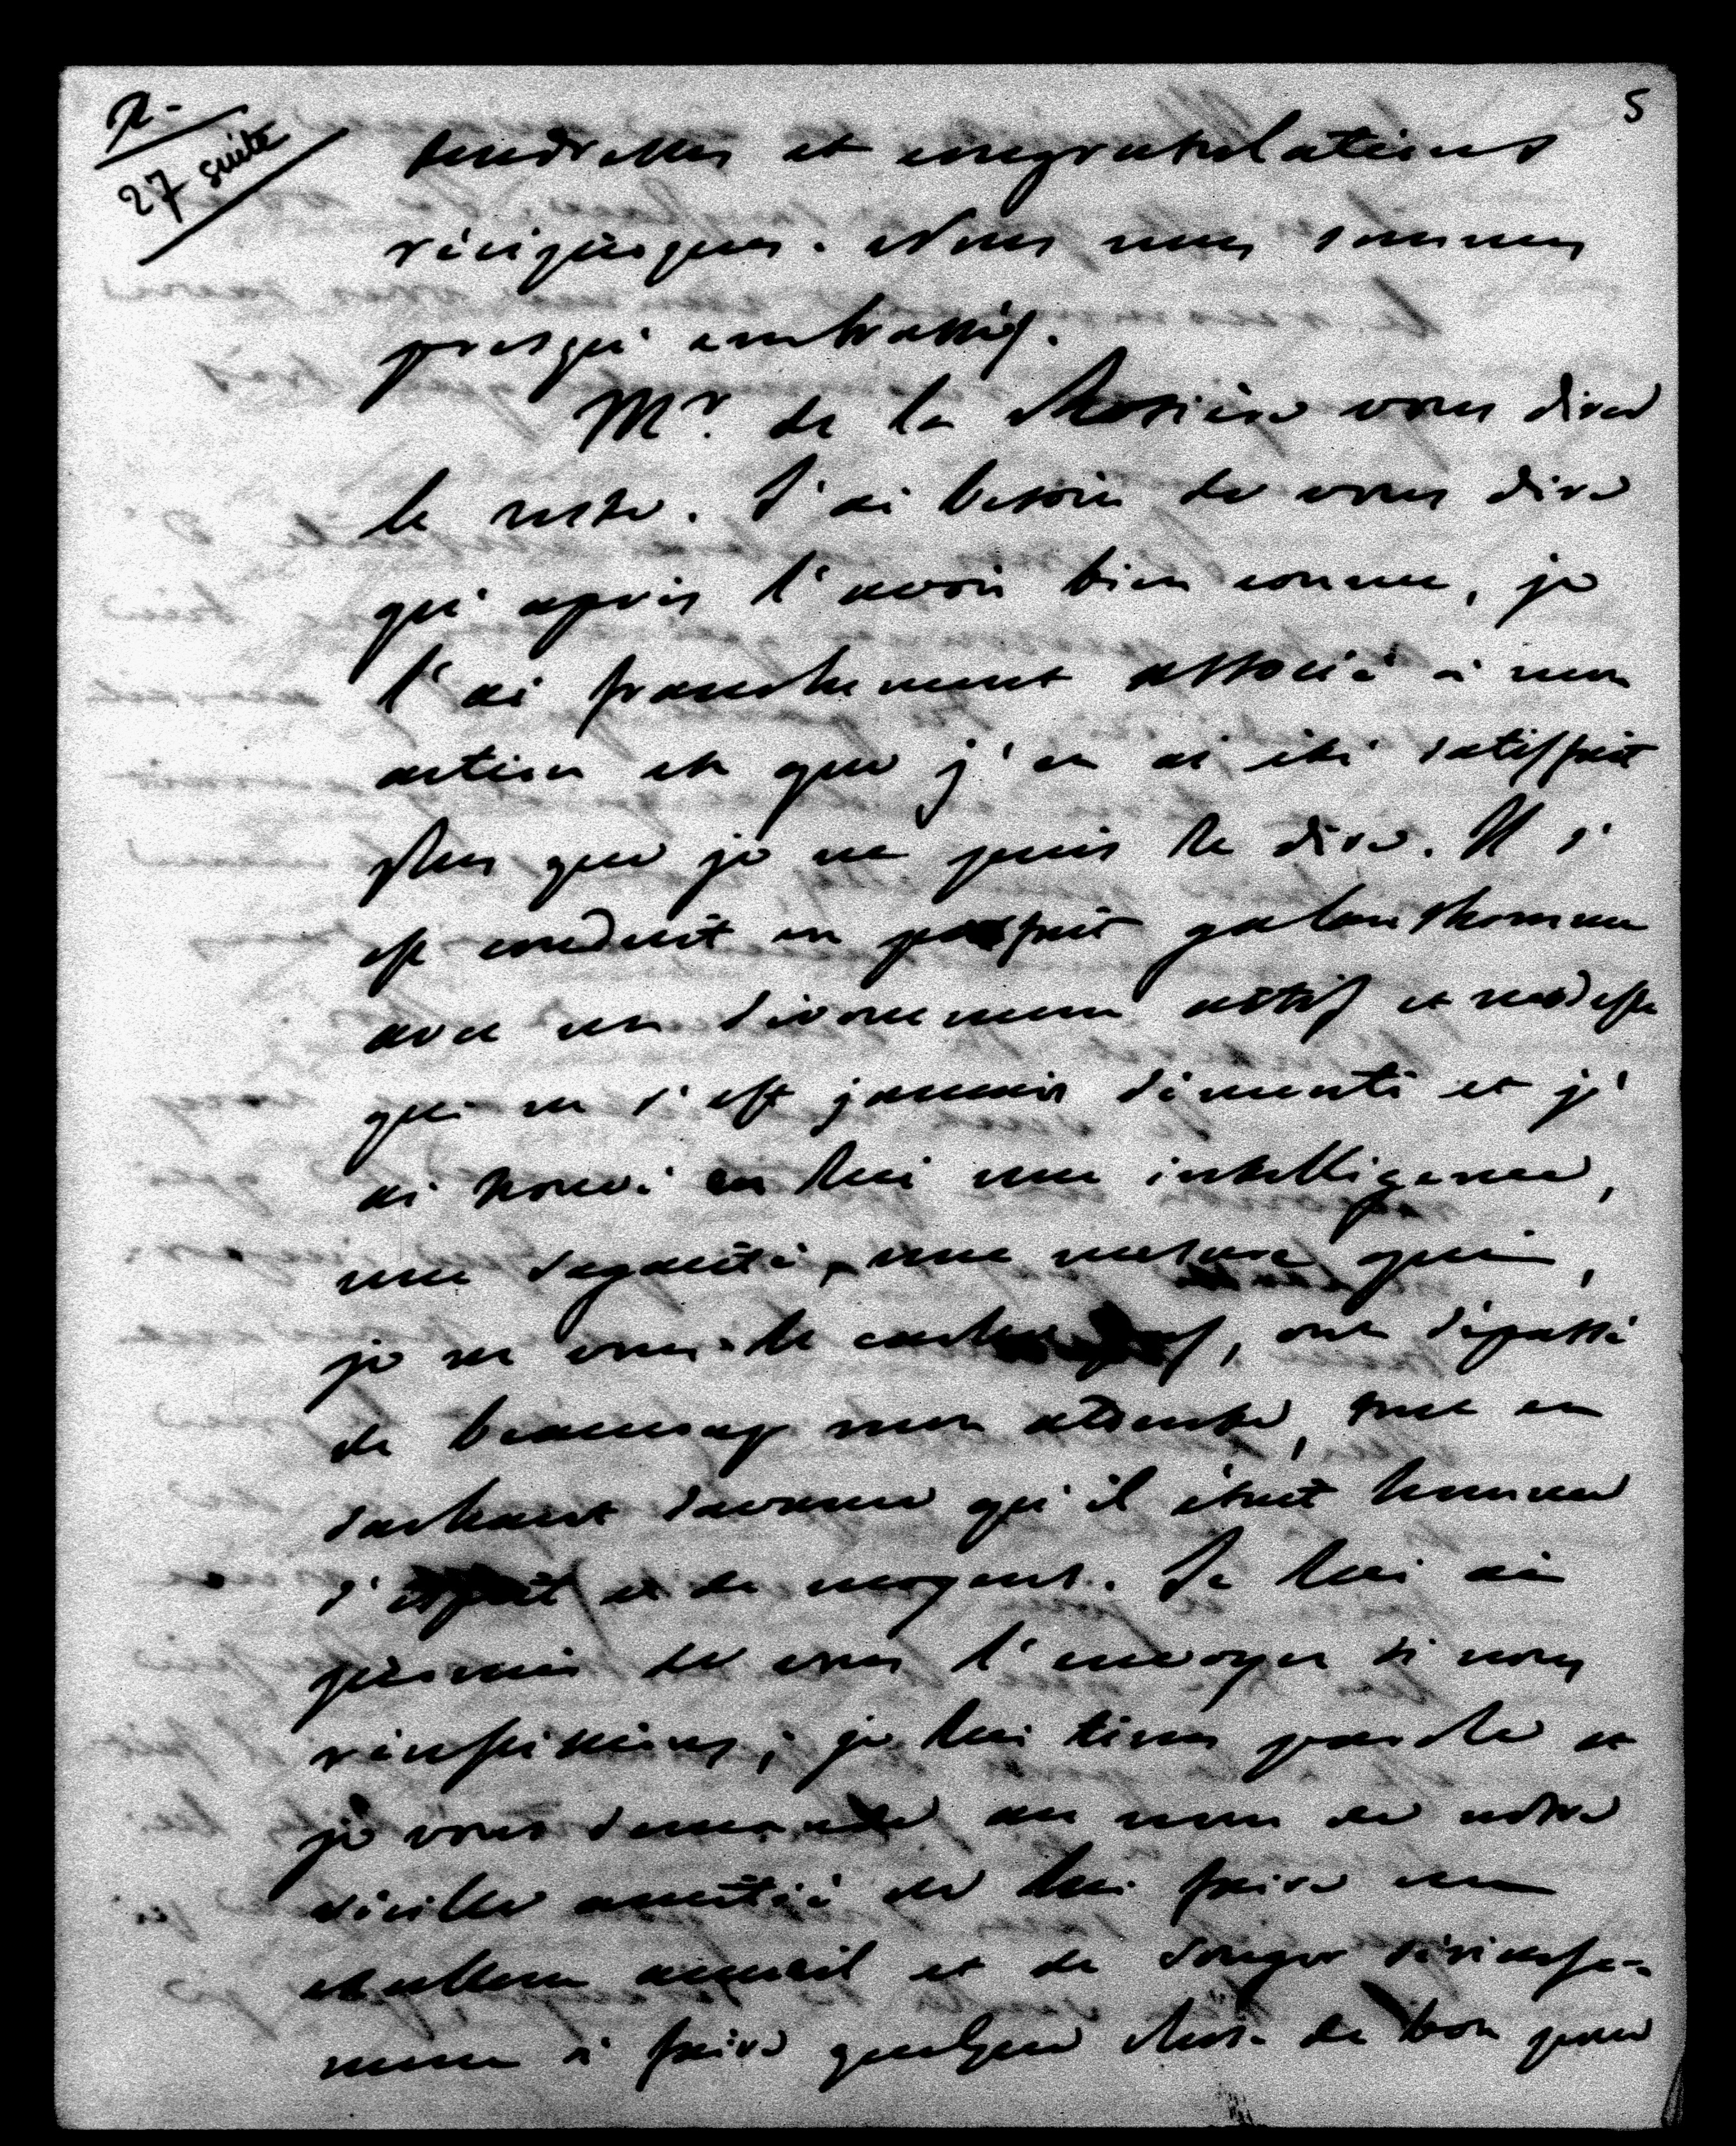 R-
27 suite
5
tendresses et congratulations
réciproques. Nous nous sommes
presqu'embrassés.
Mr. de la Rosière vous dira
le reste. J'ai besoin de vous dire
qu'après l'avoir bien connu, je
l'ai franchement associé à mon
action et que j'en ai été satisfait
plus que je ne puis le dire. Il s'
est conduit en parfait galant homme
avec un dévouement actif et modeste
qui ne s'est jamais démenti et j'
ai trouvé en lui une intelligence,
une sagacité, une mesure qui,
je ne vous le cache pas, ont dépassé
de beaucoup mon attente, tout en
sachant d'avance qu'il était homme
d'esprit et de moyens. Je lui ai
promis de vous l'envoyer si nous
réussissions; je lui tiens parole et
je vous demande au nom de notre
vieille amitié de lui faire un
excellent accueil et de songer sérieuse-
ment à faire quelque chose de bon pour